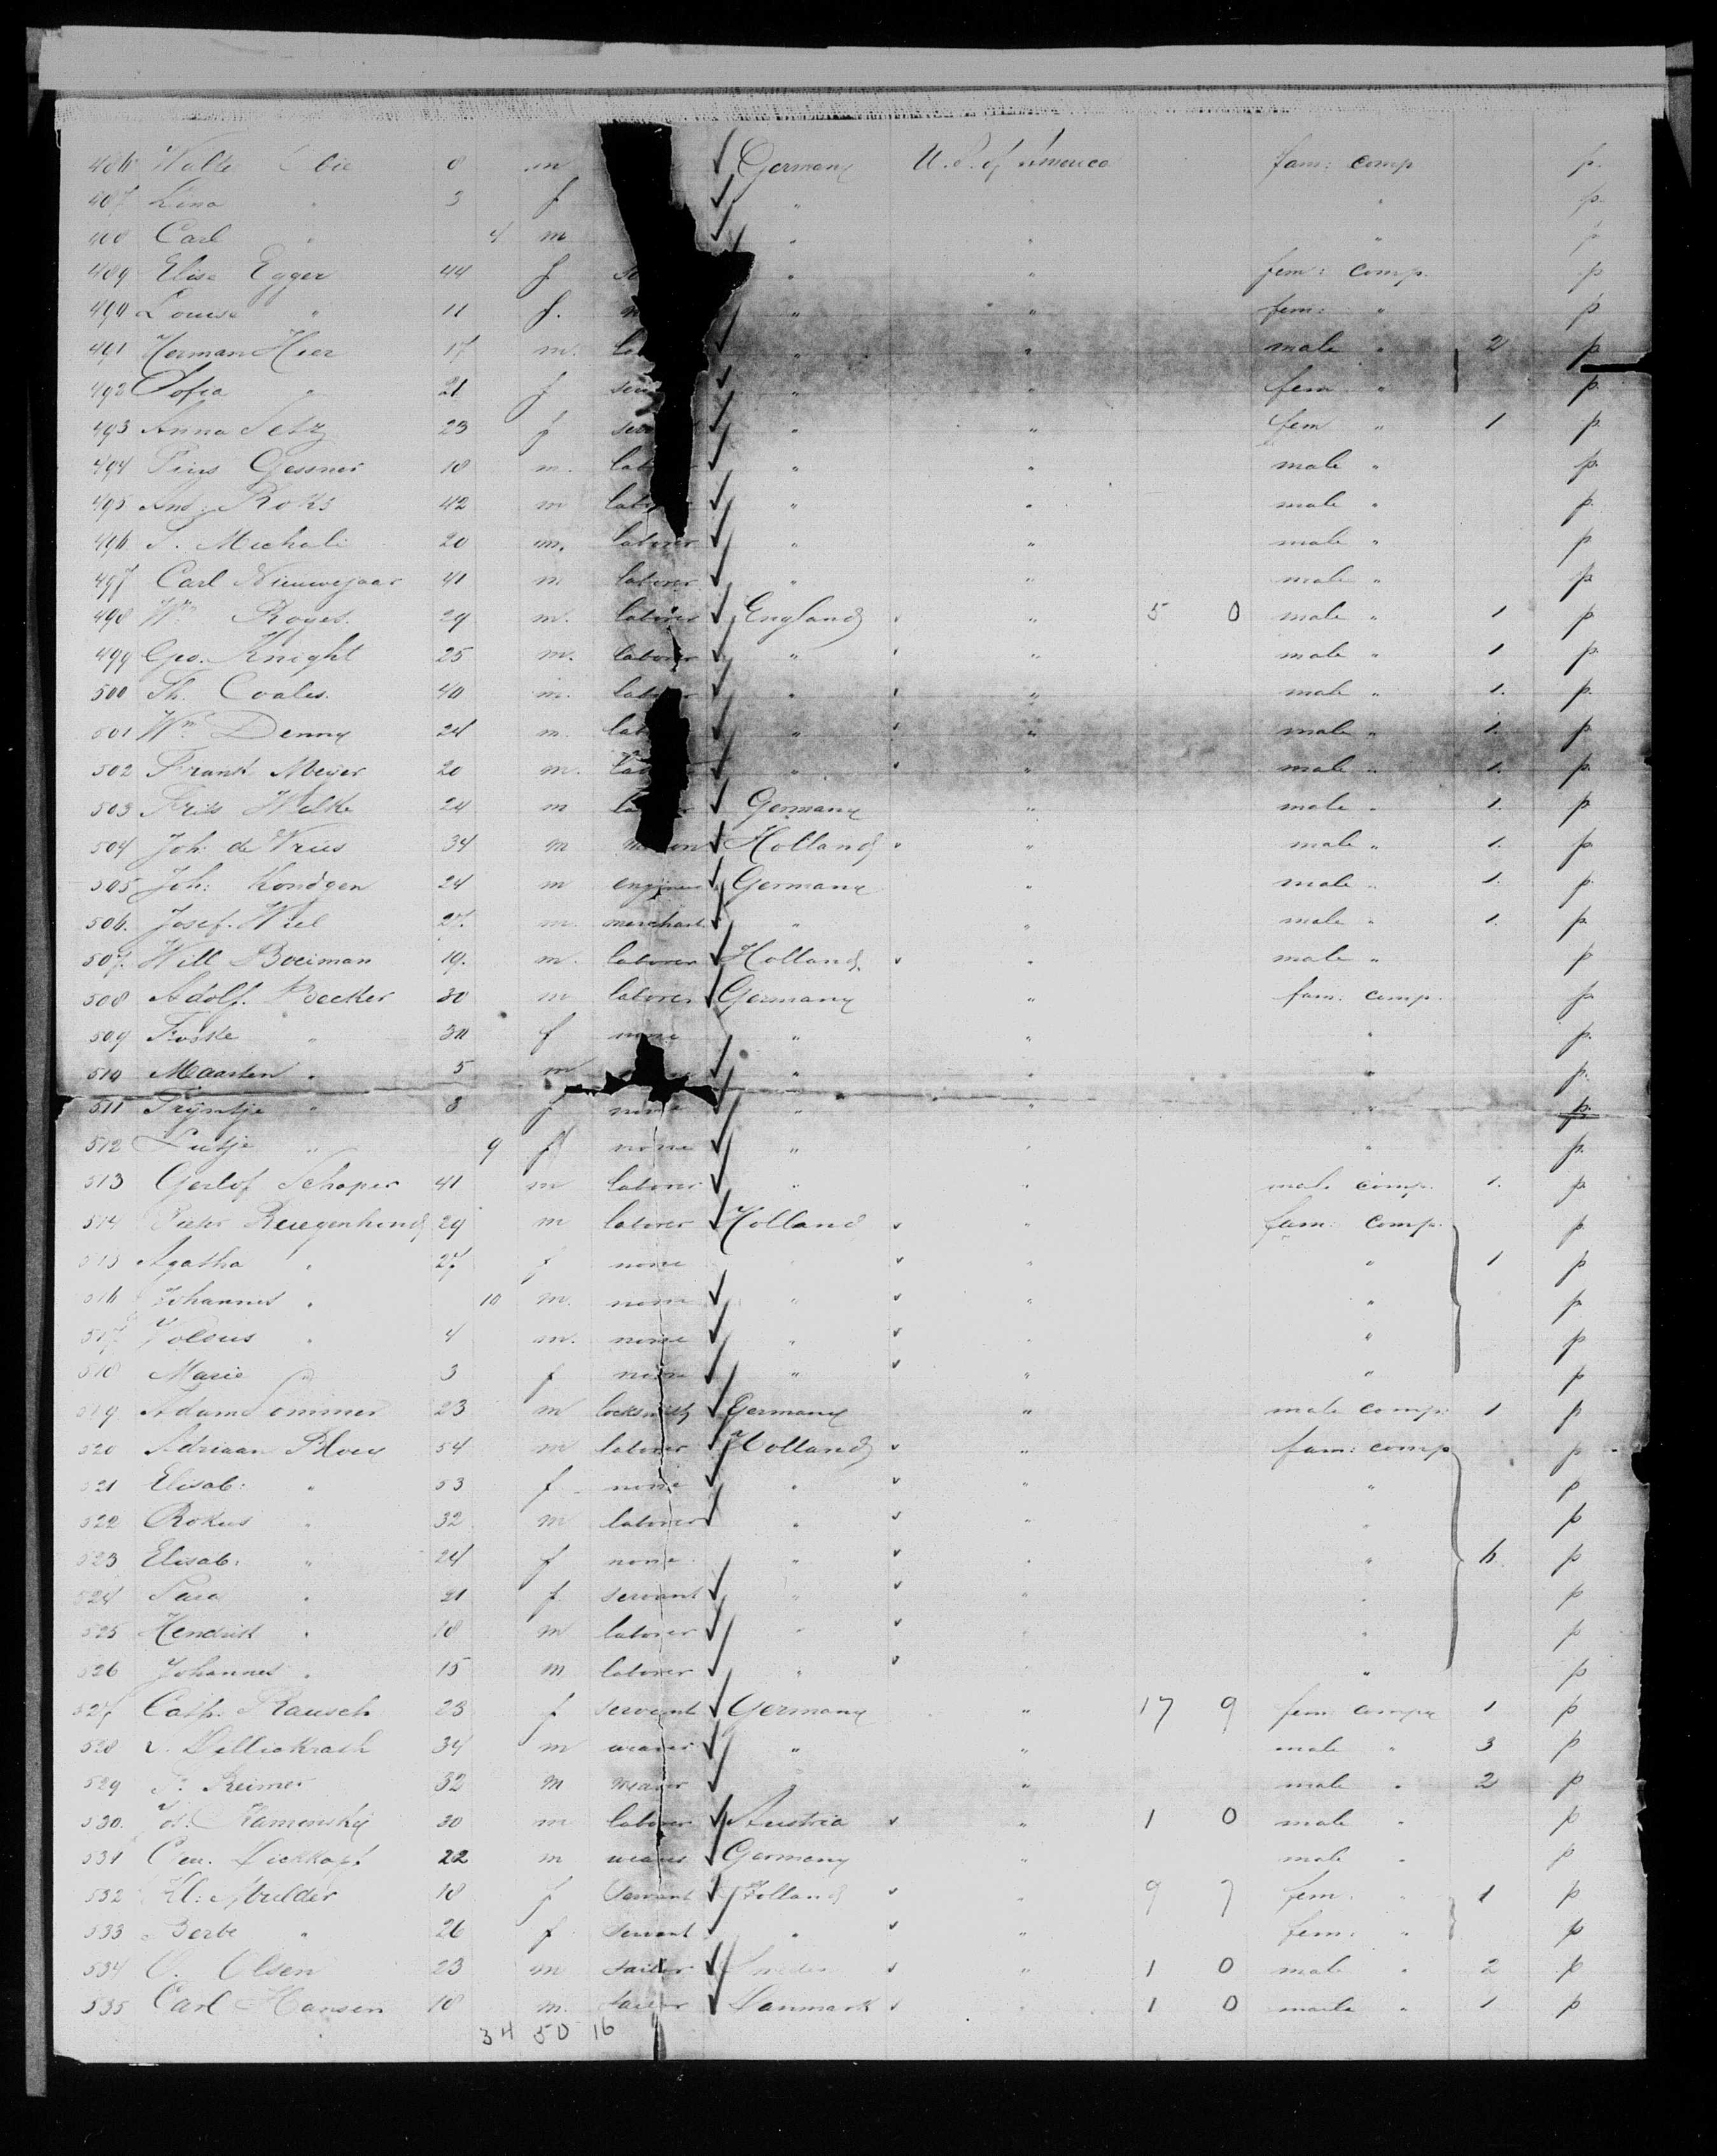 486 Walle m Germany U.S. of America fam: comp p.
487 Lina " 3 f " " " p.
488 Carl " 4 m " " " p
489 Elise Egger 44 f " " fem: comp. p
490 Louise " 11 f. " " fem: " p
491 Herman Heer 17 m. " " male " 2 p
492 Sofia " 21 f " " fem " p.
493 Anna Setz 23 f " " fem " 1 p.
494 Pius Gessner 18 m. " " male " p.
495 And. Roks 42 m " " male " p.
496 S. Michali 20 m. laborer " " male " p.
497 Carl Nieuwejaar 41 m laborer " " male " p.
498 Wm Roges. 29 m. laborer England " 5 0 male " 1 p
499 Geo. Knight 25 m. laborer " " male " 1 p.
500 Th. Coales. 40 m. " " male " 1. p.
501 Wm Denny 24 m. " " male " 1. p.
502 Frank Meyer 20 m. " " male " 1. p.
503 Frits Welke 24 m Germany " male " 1. p
504 Joh: de Vries 34 m Holland " male " 1. p.
505 Joh: Kondgen 24 m engineer Germany " male " 1. p.
506. Josef. Wiel m. merchant " " male " 1. p.
507. Will Boeiman 19. m. laborer Holland. " male " p
508 Adolf. Becker 30 m laborer Germany " fam: comp. p
509 Foske " f none " " " p.
510 Maarten " 5 m " " " p.
511 Trijntje " 3 f none " " " p.
512 Lutje " 9 f none " " " p.
513 Gerlof Schaper 41 m laborer " " male comp. 1. p
514 Pieter 29 m laborer Holland " fam: comp. p
515 Agatha " 27 f none " " " 1 p
516 Johannes " 10 m. none " " " p
517 " 4 m. none " " " p
518 Marie " 3 f none " " " p
519 Adam Sommer 23 m locksmith Germany " male comp. 1 p
520 Adriaan 54 m laborer Holland " fam: comp p
521 Elisab: " 53 f none " " " p
522 Rokus " 32 m laborer " " " p
523 Elisab: " 24 f none " " " 6. p
524 Sara " 21 f servant " " " p
525 Hendrik " 18 m laborer " " " p
526 Johannes " 15 m laborer " " " p
527 Cath. Rausch 23 f servant Germany " 17 9 fem: comp 1 p
528 34 m weaver " " male " 3 p
529 Reimer 32 m " " male " 2 p
530. Jos. Kamensky 30 m laborer Austria " 1 0 male " p
531 22 m weaver Germany " male " p
532 Mulder 18 f Servant Holland " 9 7 fem. " 1 p
533 Berbe " 26 f Servant " " fem. " p
534 O. Olsen 23 m sailor Sweden " 1 0 male " 2 p
535 Carl Hansen 18 m. sailor Danmark " 1 0 male " 1 p
34 50 16